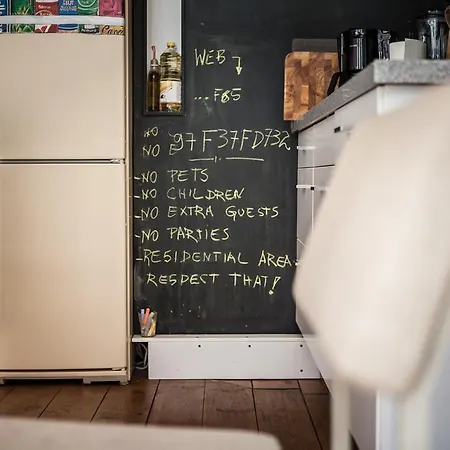 WEB
... F85
NO
NO E 97F37FD732
-NO PETS
-NO CHILDREN
-NO EXTRA GUESTS
-NO PARTIES
-RESIDENTIAL AREA
RESPECT THAT!